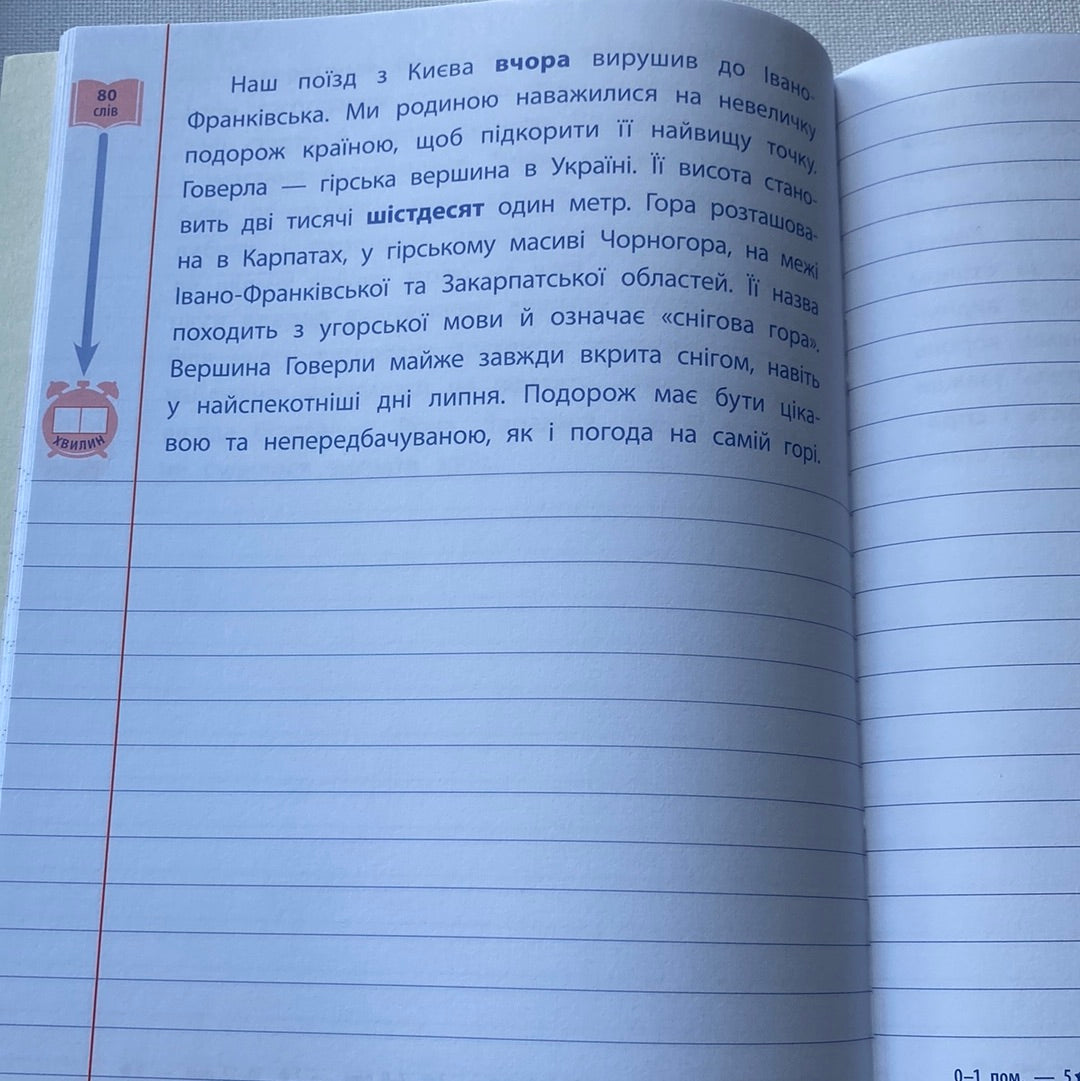 80
слів
Наш поїзд з Києва вчора вирушив до Івано-
Франківська. Ми родиною наважилися на невеличку
подорож країною, щоб підкорити її найвищу точку.
Говерла — гірська вершина в Україні. Її висота стано-
вить дві тисячі шістдесят один метр. Гора розташова-
на в Карпатах, у гірському масиві Чорногора, на межі
Івано-Франківської та Закарпатської областей. Її назва
походить з угорської мови й означає «снігова гора».
Вершина Говерли майже завжди вкрита снігом, навіть
у найспекотніші дні липня. Подорож має бути ціка-
вою та непередбачуваною, як і погода на самій горі.
ХВИЛИН
0–1 пом. — 5